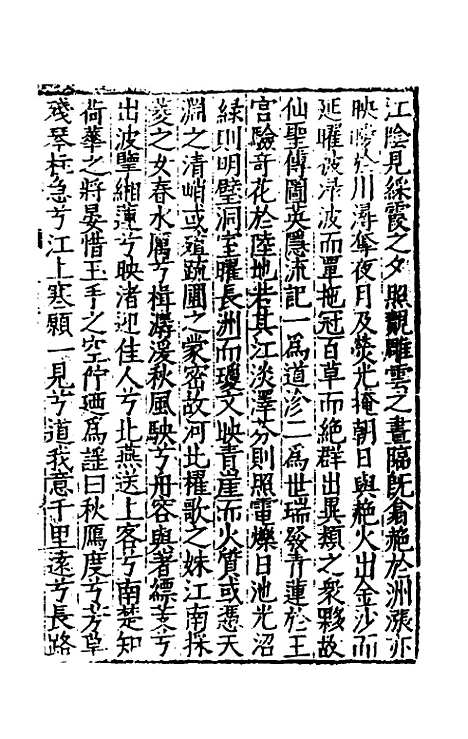 江陰見綵霞之夕照覿雕雲之晝臨既翕赩於洲漲亦
映曖於川潯奪夜月及熒光掩朝日與赩火出金沙而
延曜被淥波而覃拖冠百草而絶群出異類之衆夥故
仙聖傳圖英隱流記一為道珍二為世瑞發青蓮於王
宫驗竒花於陸地若其江淡澤芬則照電爍日池光沼
緑則明璧洞室曜長洲而瓊文映青崖而火質或憑天
淵之清峭或殖疏圃之蒙密故河北櫂歌之姝江南採
菱之女春水厲兮楫潺湲秋風駛兮舟容與著縹芰兮
出波擥緗蓮兮映渚迎佳人兮北燕送上客兮南楚知
荷華之將晏惜玉手之空佇迺為謡曰秋鴈度兮芳草
殘琴柱急兮江上寒願一見兮道我意千里遠兮長路